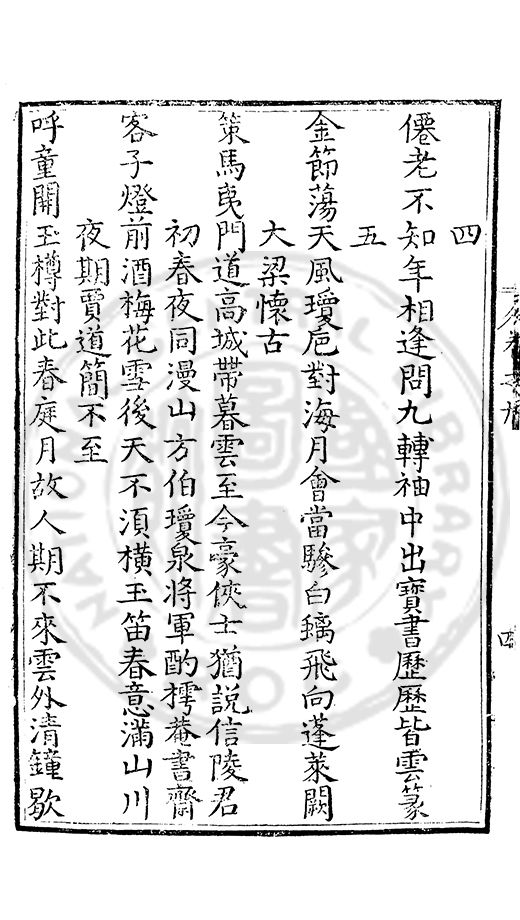 四
僊老不知年相逢問九轉袖中出寶書歷歷皆雲篆
五
金節蕩天風瓊扈對海月會當驂白螭飛向蓬萊闕
大梁懷古
策馬夷門道高城帶暮雲至今豪俠士猶説信陵君
初春夜同漫山方伯瓊泉將軍酌樗菴書齋
客子燈前酒梅花雪後天不湏橫玉笛春意滿山川
夜期賈道簡不至
呼童開玉樽對此春庭月故人期不來雲外清鐘歇